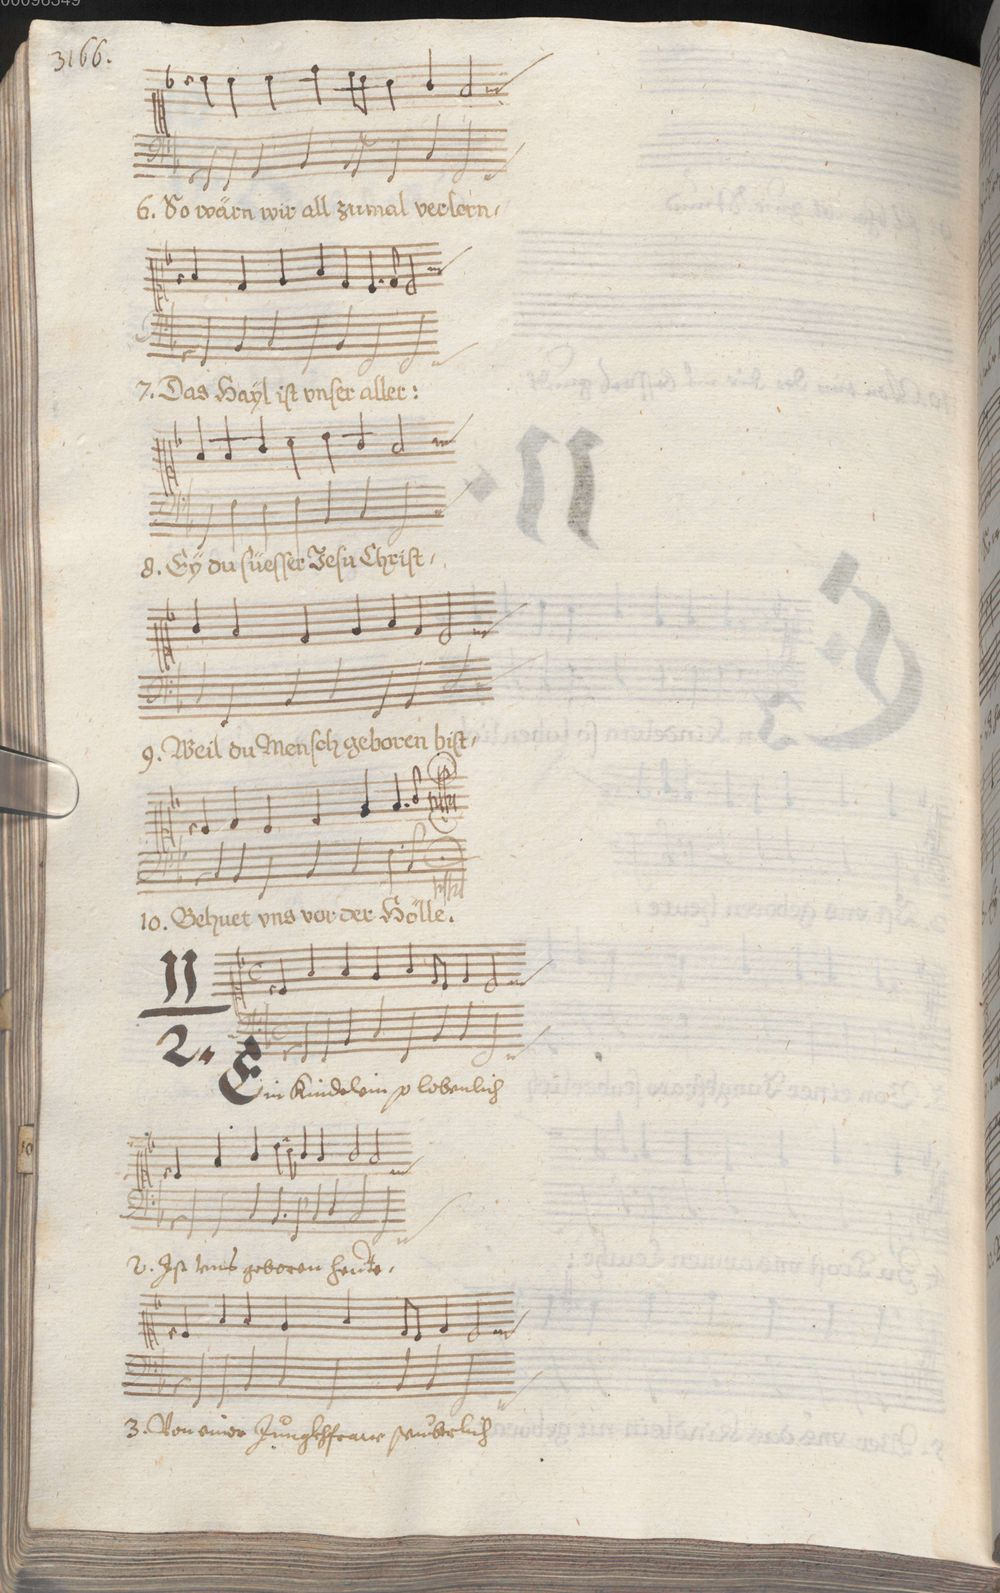 00098349
3166.
6. So wärn wir all zumal verlorn,
7. Das Hayl ist vnser aller:
8. Eÿ du süesser Jesu Christ,
9. Weil du Mensch geboren bist,
10. Behuet vns vor der Hölle.
11
2.
Ein Kindelein so lobenlich
2. Ist vnns geboren heute,
3. Von einer Jungkhfraw seuberlich
10